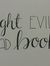 ght EVIL
book